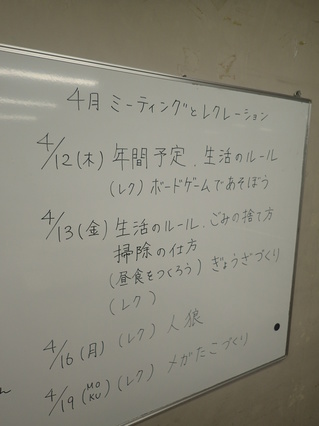 4月 ミーティングとレクレーション
4/12(木) 年間予定、生活のルール
(レク) ボードゲームであそぼう
4/13(金) 生活のルール、ごみの捨て方
掃除の仕方
(昼食をつくろう) ぎょうざづくり
(レク)
4/16(月) (レク) 人狼
4/19(MOKU) (レク) メガたこづくり